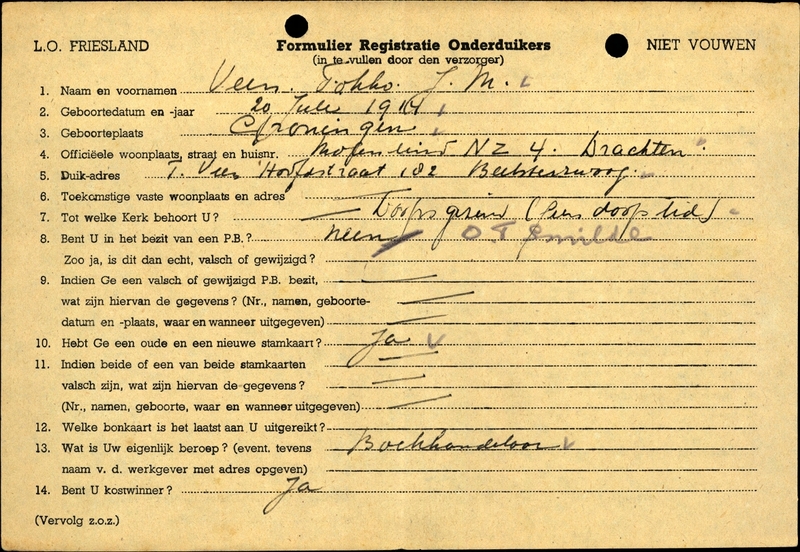 L.O. FRIESLAND
Formulier Registratie Onderduikers
NIET VOUWEN
(in te vullen door den verzorger)
1. Naam en voornamen Veen. Fokko. J. M.
2. Geboortedatum en -jaar 20 Juli 1914
3. Geboorteplaats Groningen
4. Officiëele woonplaats, straat en huisnr. NZ 4. Drachten
5. Duik-adres T. Veen Hoofdstraat 182 Beetsterzwaag
6. Toekomstige vaste woonplaats en adres
7. Tot welke Kerk behoort U? Doopsgezind ( dooplid)
8. Bent U in het bezit van een P.B.? neen O.T Smilde
Zoo ja, is dit dan echt, valsch of gewijzigd?
9. Indien Ge een valsch of gewijzigd P.B. bezit,
wat zijn hiervan de gegevens? (Nr., namen, geboorte-
datum en -plaats, waar en wanneer uitgegeven)
10. Hebt Ge een oude en een nieuwe stamkaart? Ja
11. Indien beide of een van beide stamkaarten
valsch zijn, wat zijn hiervan de gegevens?
(Nr., namen, geboorte, waar en wanneer uitgegeven)
12. Welke bonkaart is het laatst aan U uitgereikt?
13. Wat is Uw eigenlijk beroep? (event. tevens Boekhandelaar
naam v. d. werkgever met adres opgeven)
14. Bent U kostwinner? Ja
(Vervolg z.o.z.)